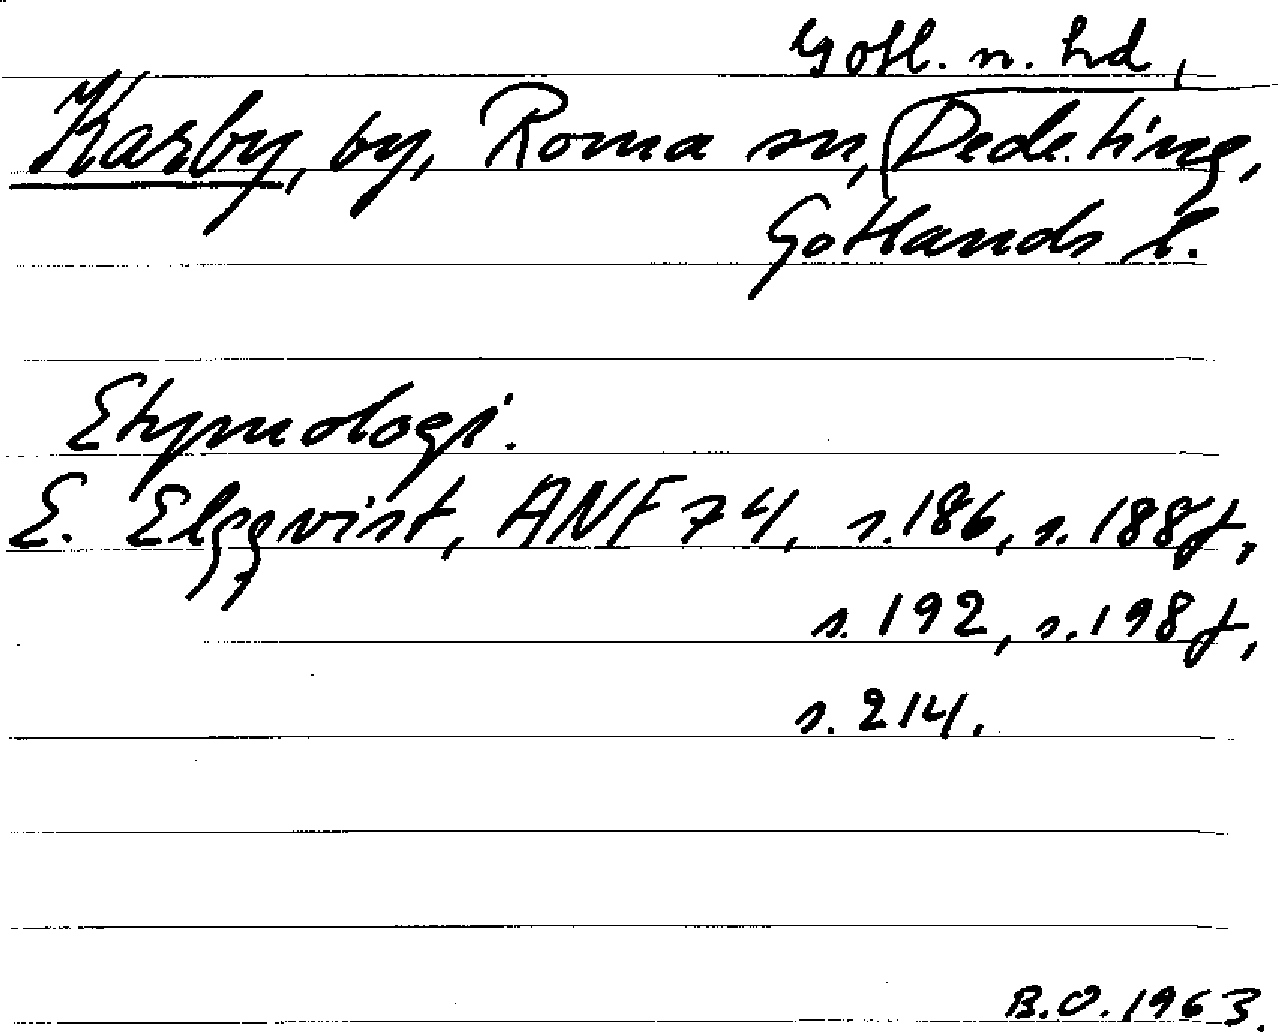 Gotl. n. hd,
Karby, by, Roma sn, Dede ting,
Gotlands l.
Etymologi.
E. Elgqvist, ANF 74, s. 186, s. 188f,
s. 192, s. 198f,
s. 214.
B.O. 1963.